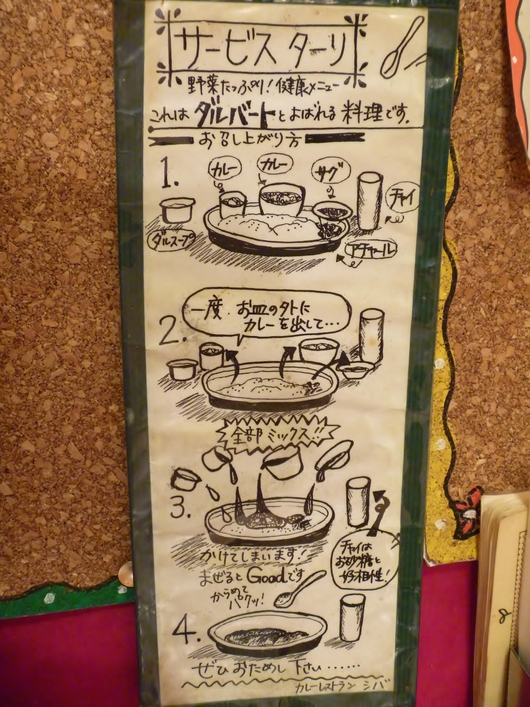 サービス ターリ
野菜たっぷり!健康メニュー
これは ダルバート とよばれる 料理です。
お召し上がり方
1.
カレー
カレー
サグ
チャイ
ダルスープ
アチャール
2.
一度、お皿の外に
カレーを出して…
全部ミックス!!
3.
かけてしまいます!
まぜると Goodです
からめて
パクッ!
チャイは
お砂糖と
好相性!
4.
ぜひ おためし 下さい……
カレーレストラン シバ